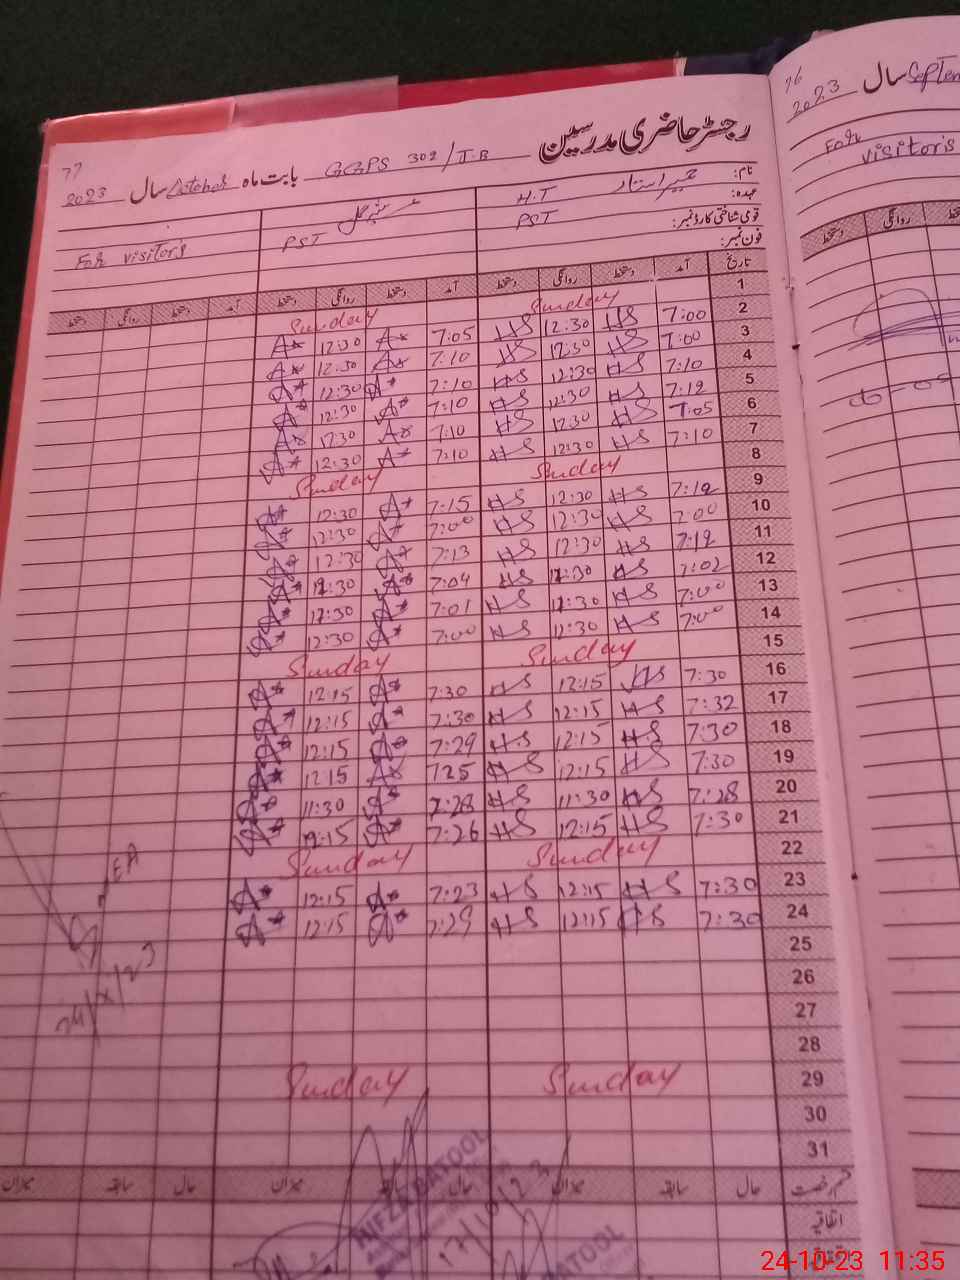 77
رجسٹر حاضری مدرسین
بابت ماہ GGPS 302/T.B
2023 سال October
نام:
عہدہ: H.T
قومی شناختی کارڈ نمبر: PST PST
فون نمبر:
For visitors
تاریخ آمد دستخط روانگی دستخط آمد دستخط روانگی دستخط آمد دستخط روانگی دستخط
1 Sunday Sunday
2 7:00 HS 12:30 HS 7:05 A* 12:30 A*
3 7:00 HS 12:30 HS 7:10 A* 12:30 A*
4 7:10 HS 12:30 HS 7:10 A* 12:30 A*
5 7:12 HS 12:30 HS 7:10 A* 12:30 A*
6 7:05 HS 12:30 HS 7:10 A* 12:30 A*
7 7:10 HS 12:30 HS 7:10 A* 12:30 A*
8 Sunday Sunday
9 7:12 HS 12:30 HS 7:15 A* 12:30 A*
10 7:00 HS 12:30 HS 7:00 A* 12:30 A*
11 7:12 HS 12:30 HS 7:13 A* 12:30 A*
12 7:02 HS 12:30 HS 7:04 A* 12:30 A*
13 7:00 HS 12:30 HS 7:01 A* 12:30 A*
14 7:00 HS 12:30 HS 7:00 A* 12:30 A*
15 Sunday Sunday
16 7:30 HS 12:15 HS 7:30 A* 12:15 A*
17 7:32 HS 12:15 HS 7:30 A* 12:15 A*
18 7:30 HS 12:15 HS 7:29 A* 12:15 A*
19 7:30 HS 12:15 HS 725 A* 12:15 A*
20 7:28 HS 11:30 HS 7:28 A* 11:30 A*
21 7:30 HS 12:15 HS 7:26 A* 12:15 A*
22 Sunday Sunday
23 7:30 HS 12:15 HS 7:23 A* 12:15 A*
24 7:30 HS 12:15 HS 7:29 A* 12:15 A*
25
26
27
28
29 Sunday Sunday
30
31
قسم رخصت حال سابقہ میزان حال سابقہ میزان حال سابقہ میزان
اتفاقیہ
24/X/23
17/10/23
BATOOL
BATOOL
76
2023 سال
For
visitors
دستخط روانگی
24-10-23 11:35